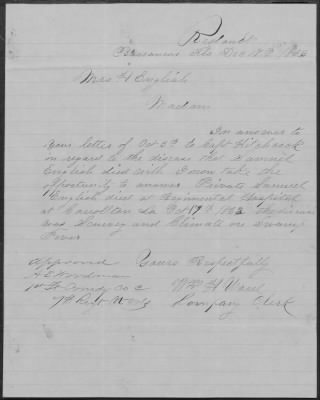 Barrancas Fla Dec 18th 186
Mrs H English
Madam
In answer to
your letter of Oct 5th to Capt Hitchcock
in regard to the disease that Samuel
English died with I now take the
opportunity to answer. Private Samuel
English died at Regimental Hospital
at Carrollton La Oct 17th 1863 the disease
was and Climate or swamp
Fever
Approved Yours Respectfully
A E Woodman
1st Lt Comdg Co C Wm H
7th Regt Company Clerk